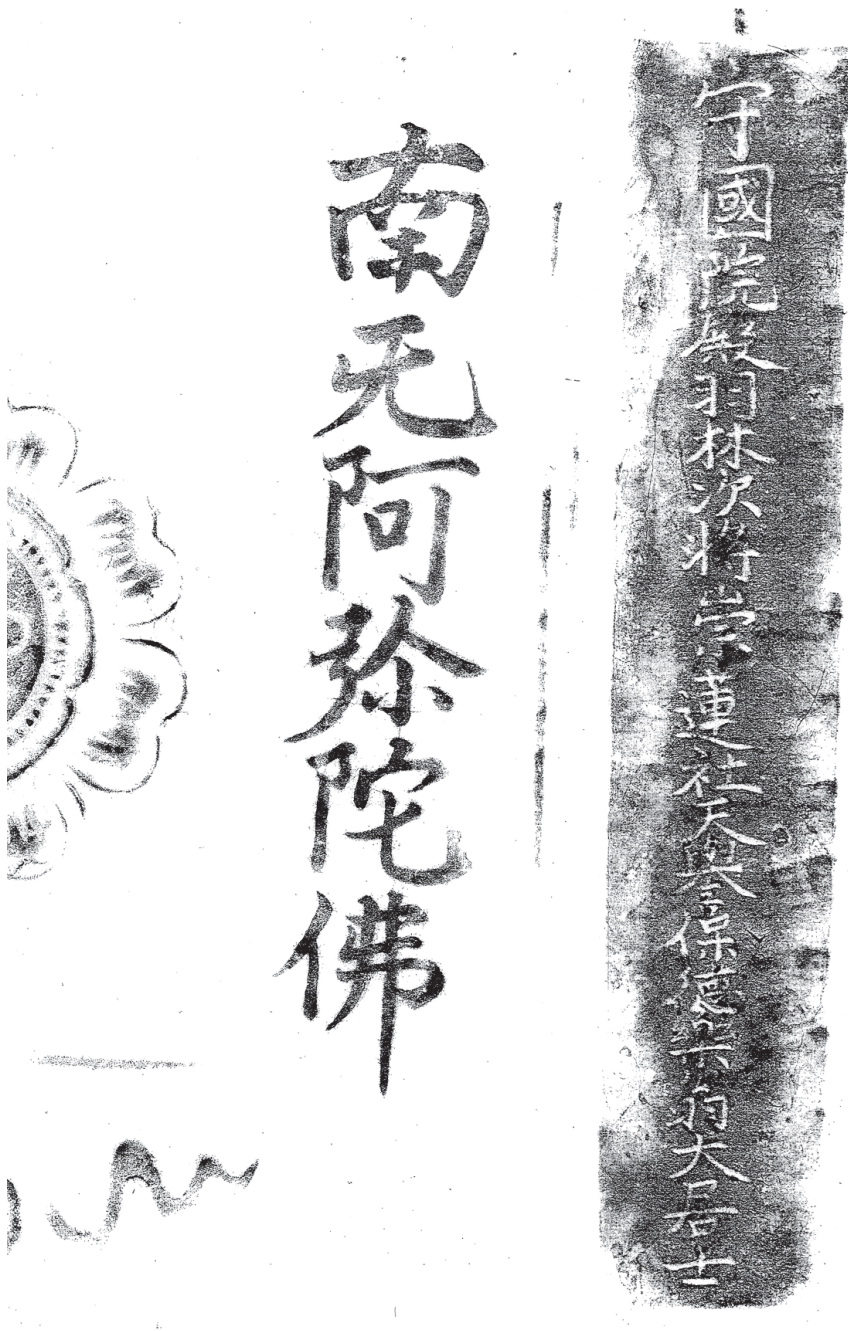 守國院殿羽林次將崇蓮社天譽保德樂翁大居士
南无阿弥陀佛